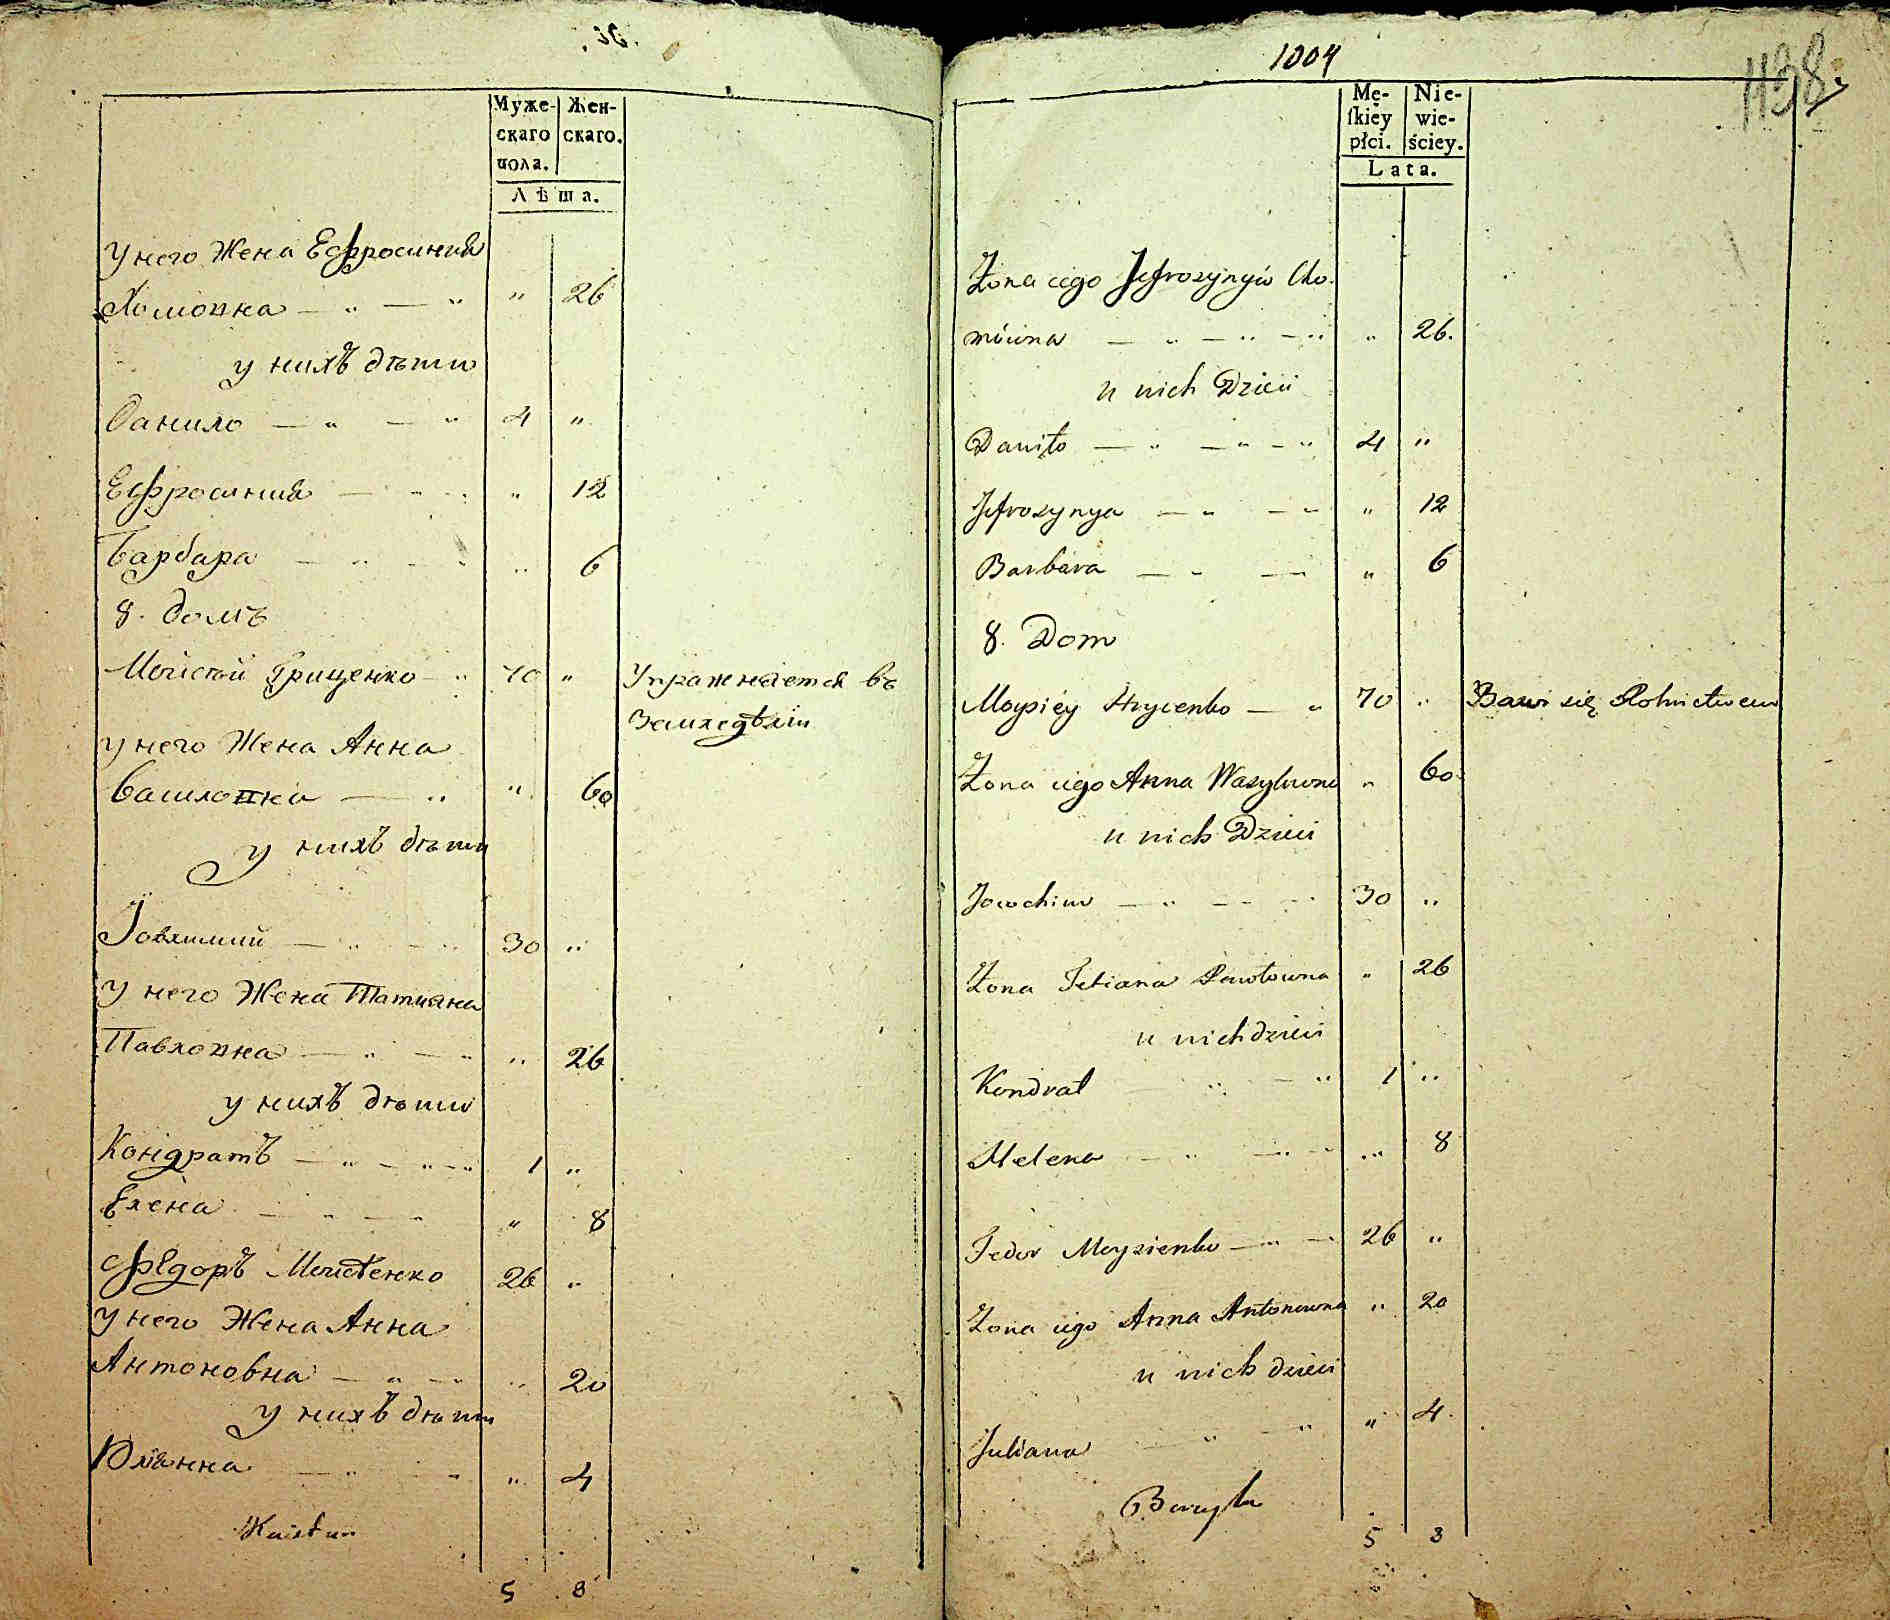 Муже-
скаго
пола.
Жен-
скаго.
Лѣта.
У него Жена Ефросиния
Хомовна — " — " " 26
у нихъ дѣти
Данило — " — " 4 "
Ефросиния — " " 12
Барбара — " — " " 6
8. домъ
Мойсей Гриценко — " 70 " Упражняется въ
Земледѣліи
у него Жена Анна
Василовна — " " 60
у нихъ дѣти
Іоакимий — " — " 30 "
У него Жена Татияна
Павловна — " — " " 26
у нихъ дѣти
Кондратъ — " — " — " 1 "
Елена — " — " " 8
Федоръ Мойсеенко 26 "
У него Жена Анна
Антоновна — " — " " 20
у нихъ дѣти
Юлианна — " — " " 4
5 8
1004
1138
Mę-
skiey
płci.
Nie-
wie-
ściey.
Lata.
Żona iego Jefrozynyia Cho-
mówna — " — " — " " 26.
u nich Dzieci
Daniło — " — " — " 4 "
Jefrozynya — " — " " 12
Barbara — " — " " 6
8. Dom
Moysiey Hrycenko — " 70 " Bawi się Rolnictwem
Żona iego Anna Wasylowna " 60
u nich Dzieci
Joachim — " — " 30 "
Żona Tetiana Pawłowna " 26
u nich dzieci
Kondrat " — " 1 "
Helena — " — " " 8
Fedor Moysienko — " — " 26 "
Żona iego Anna Antonowna " 20
u nich dzieci
Juliana — " — " " 4
5 8